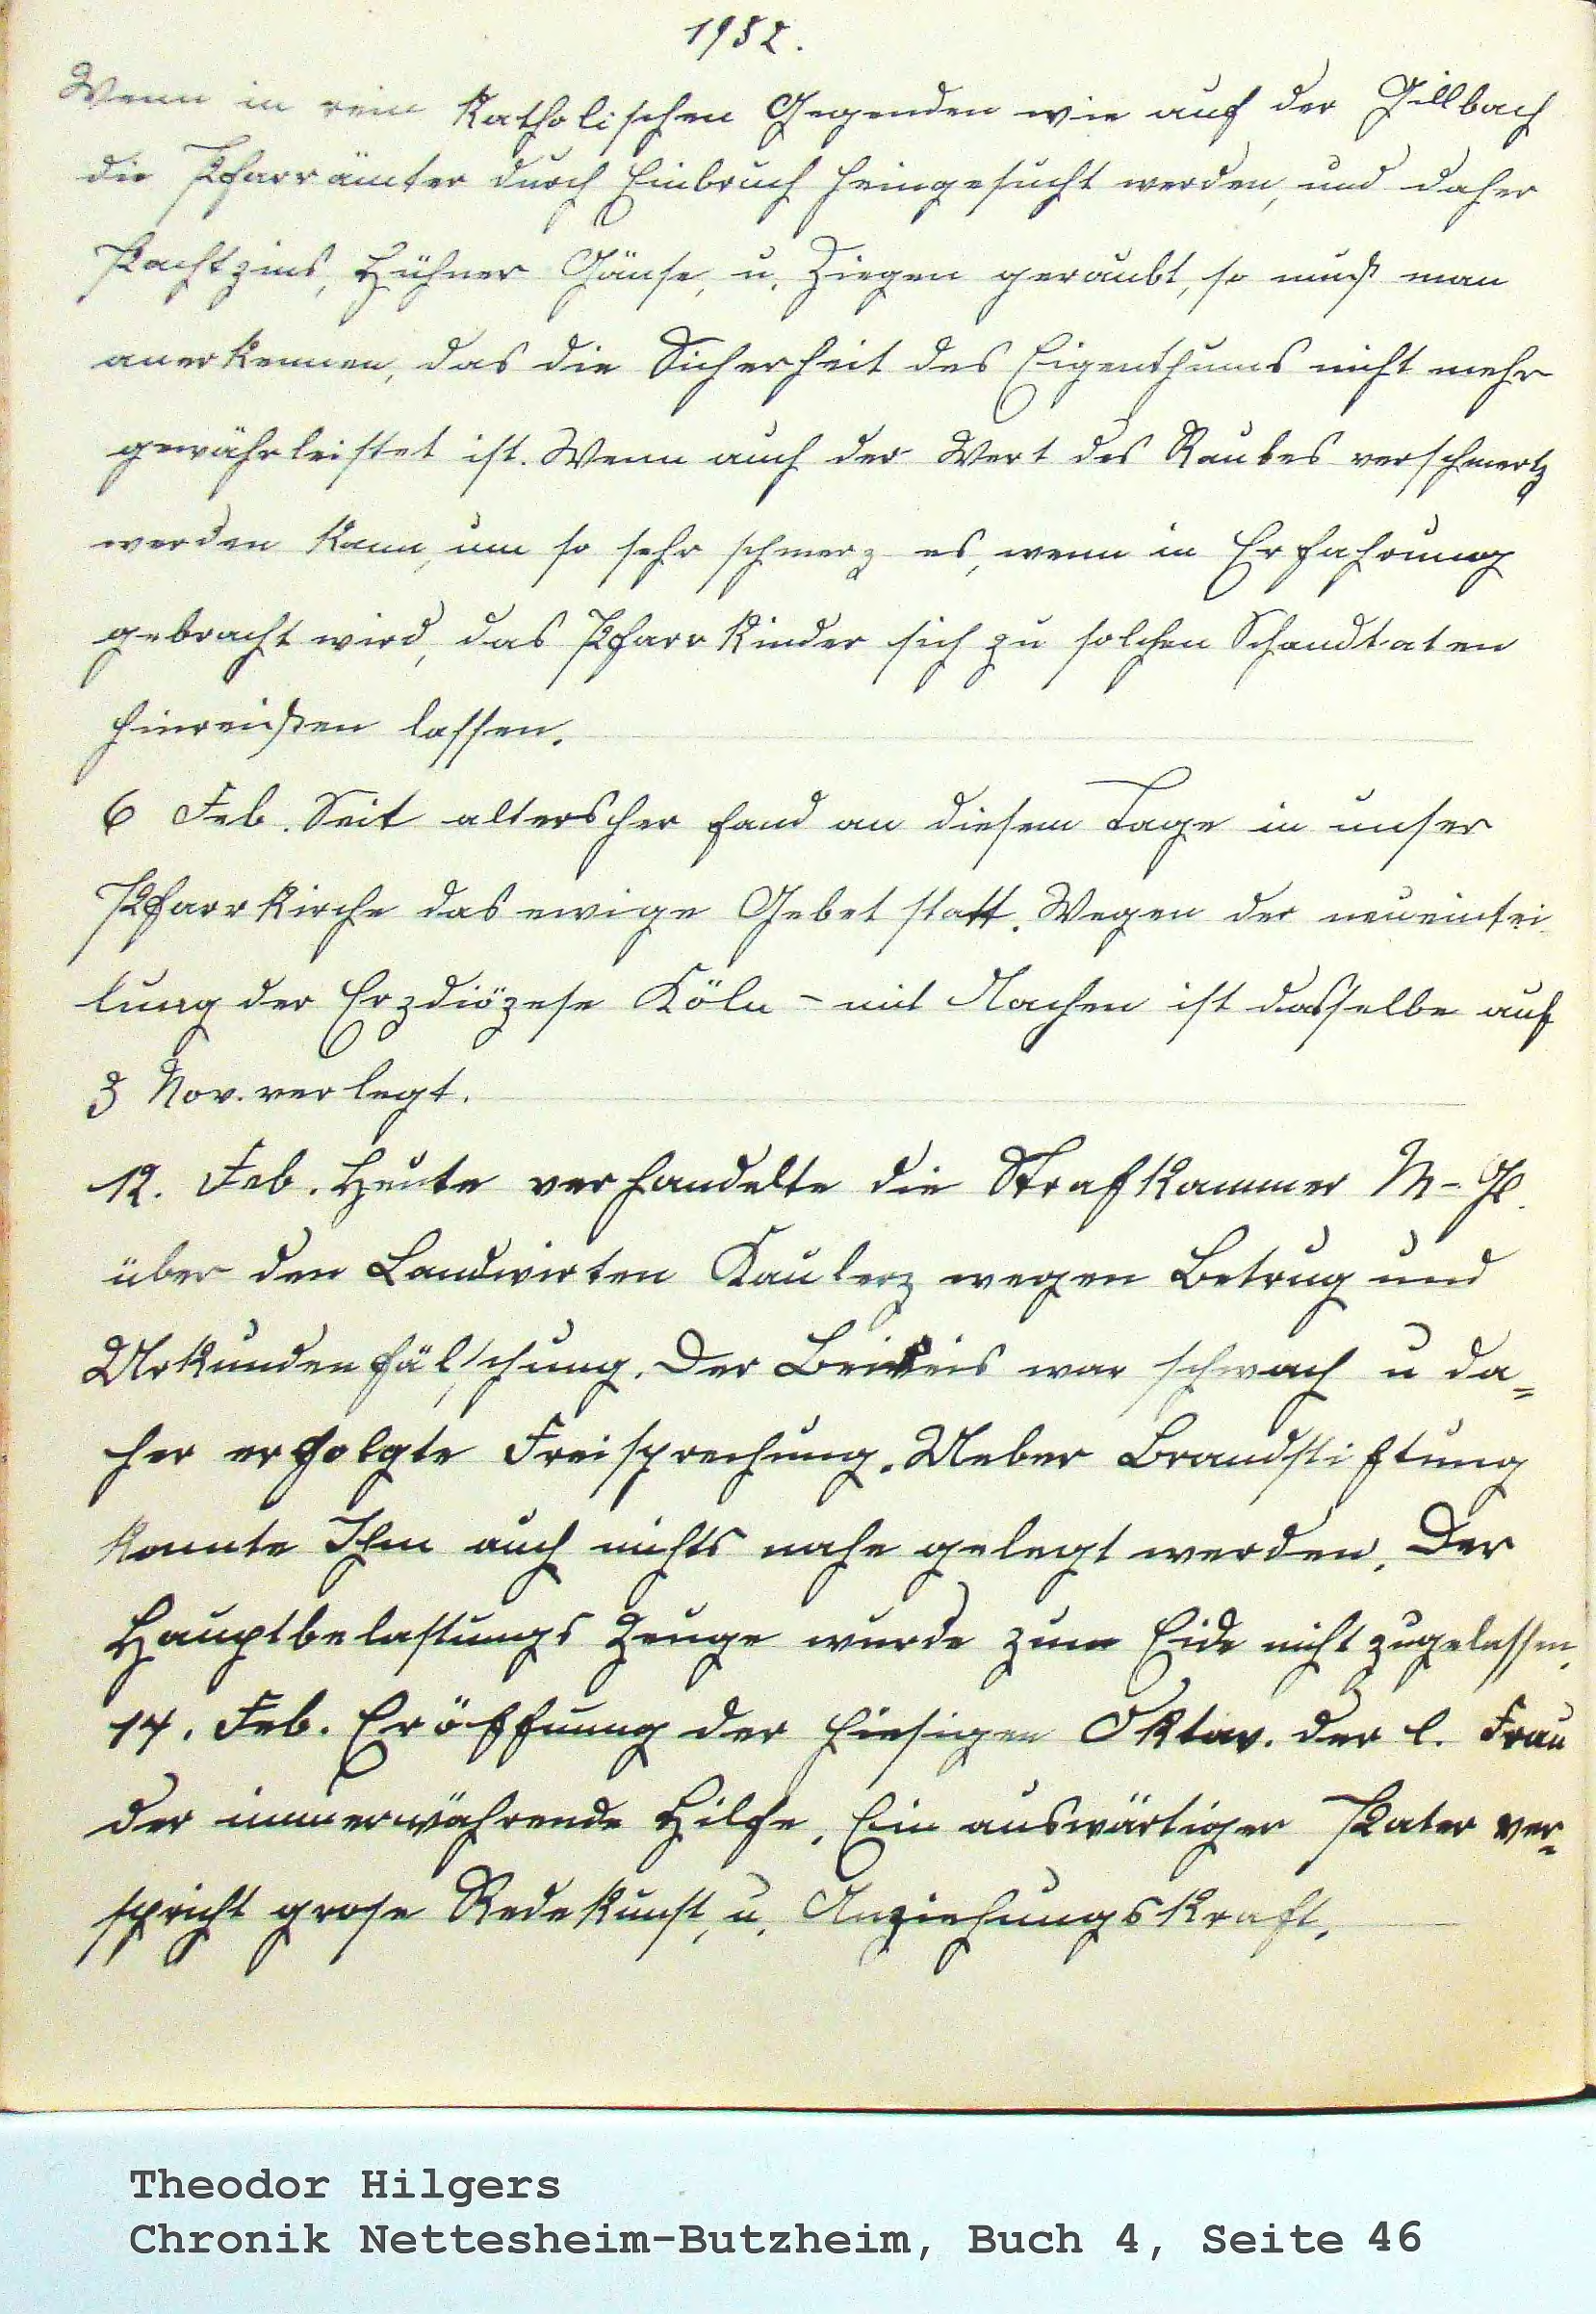 1932.
Wenn in rein Katholischen Gegenden wie auf der Gillbach
die Pfarrämter durch Einbruch heimgesucht werden, und daher
Pachtzins, Hühner Gänse, u. Ziegen geraubt, so muß man
anerkennen, das die Sicherheit des Eigenthums nicht mehr
gewährleistet ist. Wenn auch der Wert des Raubes verschmertz
werden kann, um so sehr schmerz es, wenn in Erfahrung
gebracht wird, das Pfarrkinder sich zu solchen Schandtaten
hinreißen lassen.
6 Feb. Seit altersher fand an diesem Tage in unser
Pfarrkirche das ewige Gebet statt. Wegen der neueintei
lung der Erzdiözese Köln - mit Aachen ist dasselbe auf
3 Nov. verlegt.
12. Feb. Heute verhandelte die Strafkammer M-Gl.
über den Landwirten Kaulerz wegen Betrug und
Urkundenfälschung. Der Beiweis war schwach u da=
her erfolgte Freisprechung. Ueber Brandstiftung
konnte Ihm auch nichts nahe gelegt werden. Der
Hauptbelastungs Zeuge wurde zum Eide nicht zugelassen.
14. Feb. Eröffnung der hiesigen Oktav. der l. Frau
der immerwährende Hilfe. Ein auswärtiger Pater ver=
spricht grose Redekunst, u. Anziehungskraft.
Theodor Hilgers
Chronik Nettesheim-Butzheim, Buch 4, Seite 46